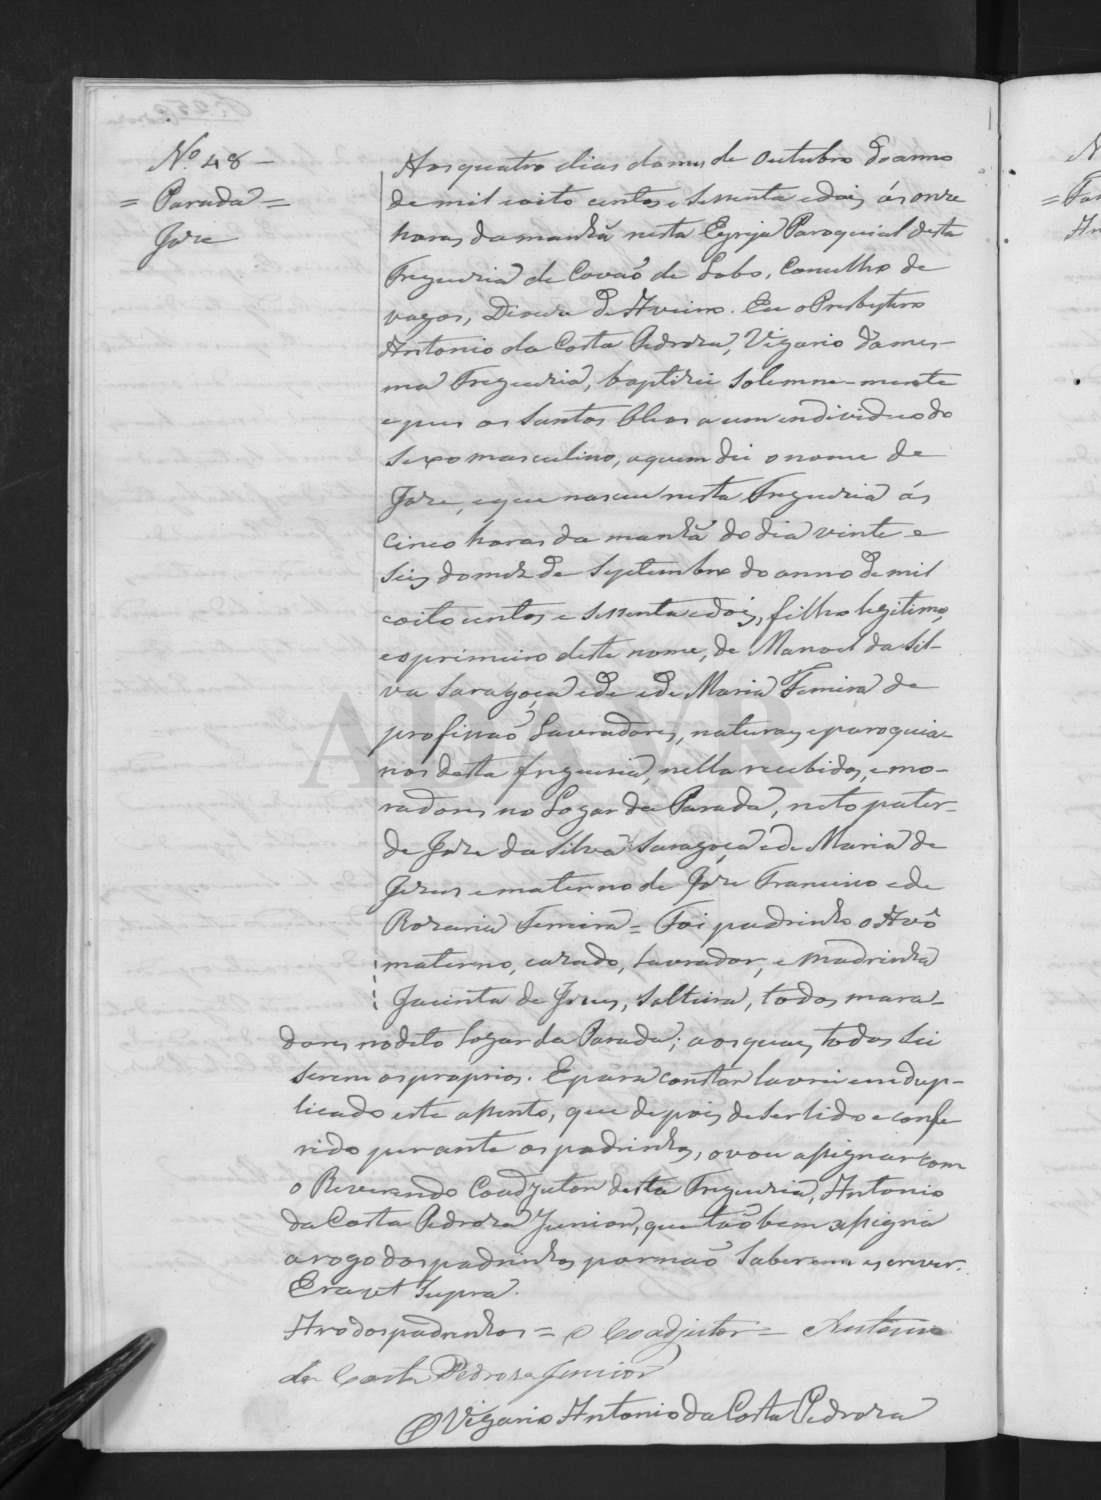 Nº 48 –
= Parada =
Joze
Aos quatro dias do mes de Outubro do anno
de mil e oito centos e sessenta e dois ás onze
horas da manhã nesta Egreja Paroquial desta
Freguezia de Covaõ de Lobo, Conselho de
vagos, Diocese de Aveiro. Eu o Presbytero
Antonio da Costa Pedroza, Vigario da mes-
ma Freguezia, baptizei Solemne-mente
e pus os Santos Oleos a um individuo do
Sexo masculino, a quem dei o nome de
Joze, e que nasceu nesta Freguezia ás
Cinco horas da manhã do dia vinte e
Seis do mez de Septembro do anno de mil
e oito centos e sessenta e dois, filho legitimo,
e o primeiro deste nome, de Manoel da Sil-
va Saragoça e de e de Maria Ferreira de
profissaõ Lavradores, naturaes e paroquia-
nos desta freguesia, nella recebidos, e mo-
radores no Logar da Parada, neto pater-
de Joze da Silva Saragoça e de Maria de
Jezus e materno de Joze Francisco e de
Rozaria Ferreira = Foi padrinho o Avô
materno, cazado, Lavrador, e Madrinha
Jacinta de Jezus, Solteira, todos mora-
dores no dito Logar da Parada; aos quaes todos Sei
Serem os proprios. E para constar lavrei em dup-
licado este assento, que depois de Ser lido e confe
rido perante os padrinhos, o vou assignar com
o Reverendo Coadjutor desta Freguezia, Antonio
da Costa Pedroza Junior, que taõ bem assigna
a rogo dos padrinhos por naõ Saberem escrever.
Era ut Supra.
A ro dos padrinhos = o Coadjutor = Antonio
da Costa Pedrosa Junior
O Vigario Antonio da Costa Pedroza
ADAVR